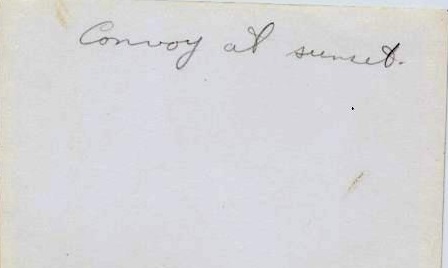 Convoy at sunset.